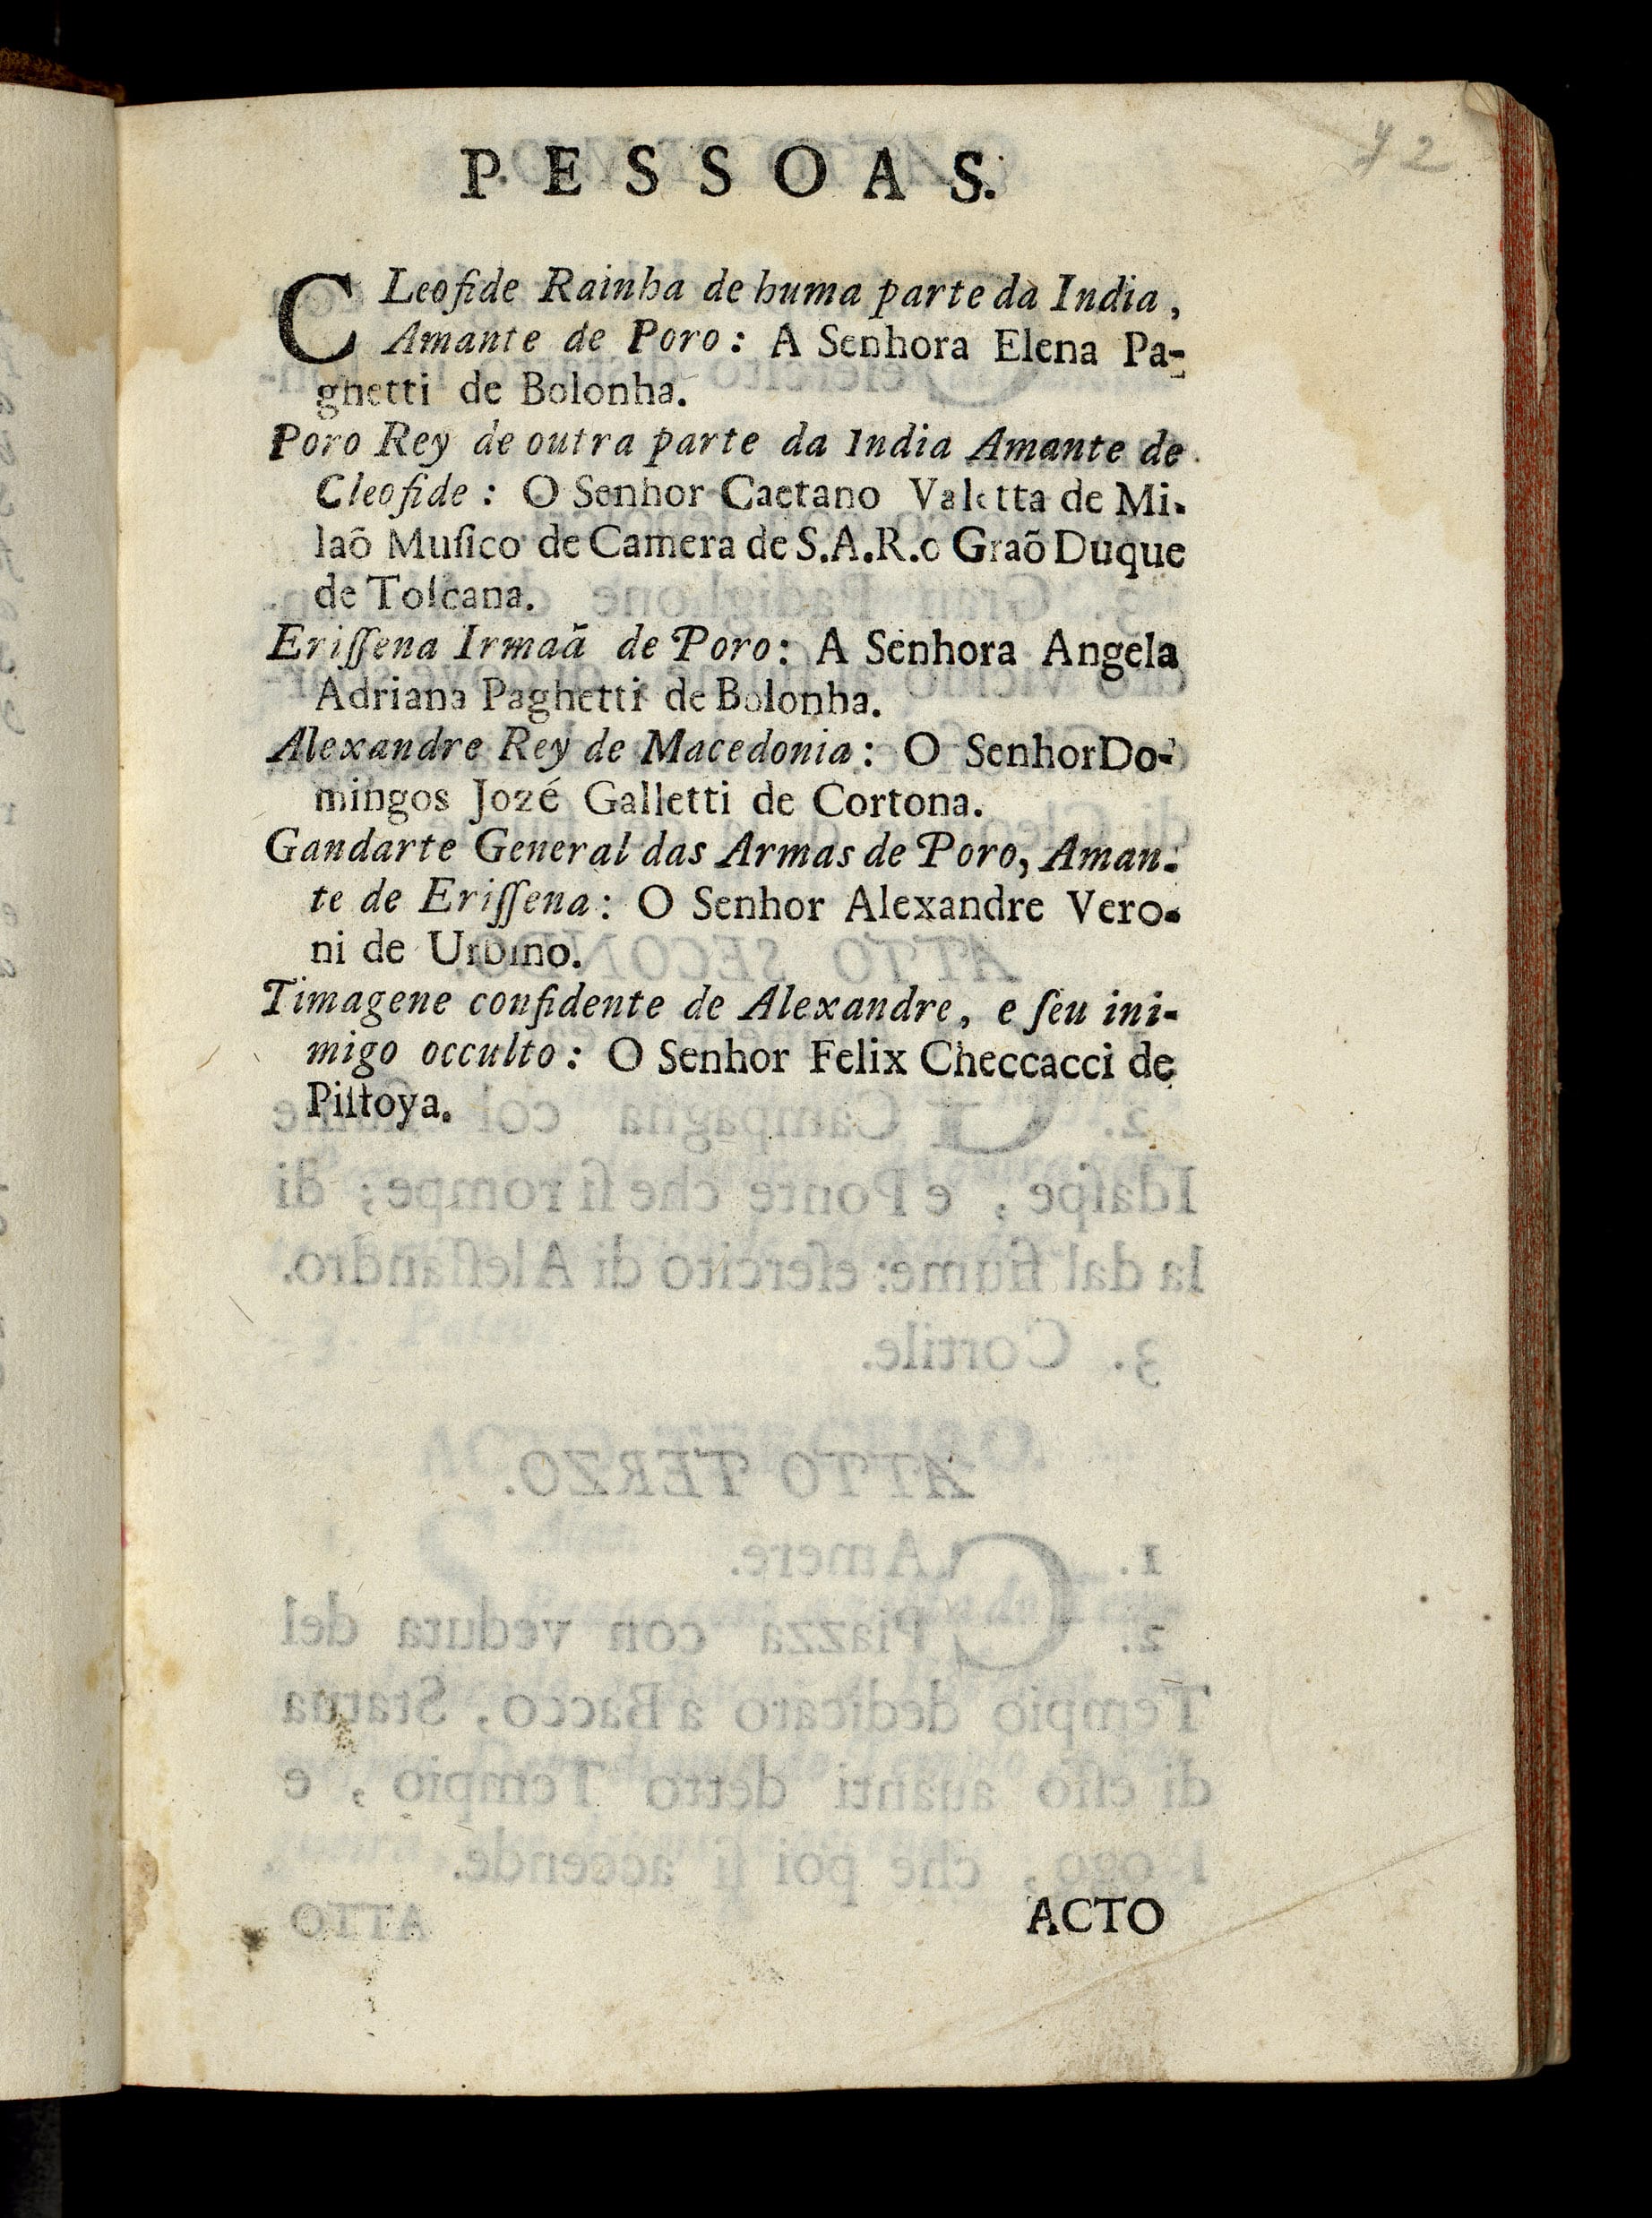 PESSOAS.
CLeofide Rainha de huma parte da India,
Amante de Poro: A Senhora Elena Pa-
ghetti de Bolonha.
Poro Rey de outra parte da India Amante de
Cleofide: O Senhor Caetano Valetta de Mi-
laõ Muſico de Camera de S.A.R.o Graõ Duque
de Toſcana.
Eriſſena Irmaã de Poro: A Senhora Angela
Adriana Paghetti de Bolonha.
Alexandre Rey de Macedonia: O Senhor Do-
mingos Jozé Galletti de Cortona.
Gandarte General das Armas de Poro, Aman-
te de Eriſſena: O Senhor Alexandre Vero-
ni de Urbino.
Timagene confidente de Alexandre, e ſeu ini-
migo occulto: O Senhor Felix Checcacci de
Piſtoya.
ACTO